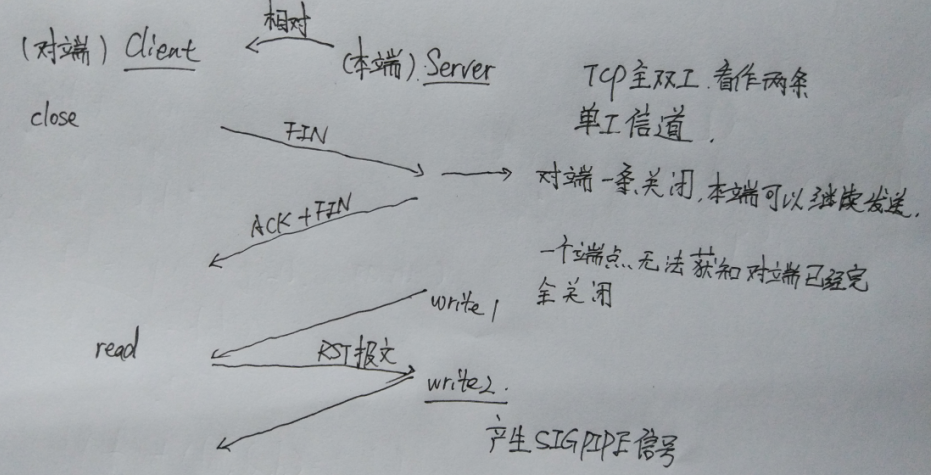 相对
(对端) Client
(本端) Server
TCP全双工.看作两条
单工信道.
close
FIN
对端一条关闭,本端可以继续发送.
ACK+FIN
一个端点无法获知对端已经完
全关闭
write1
read
RST报文
write2.
产生SIGPIPE信号